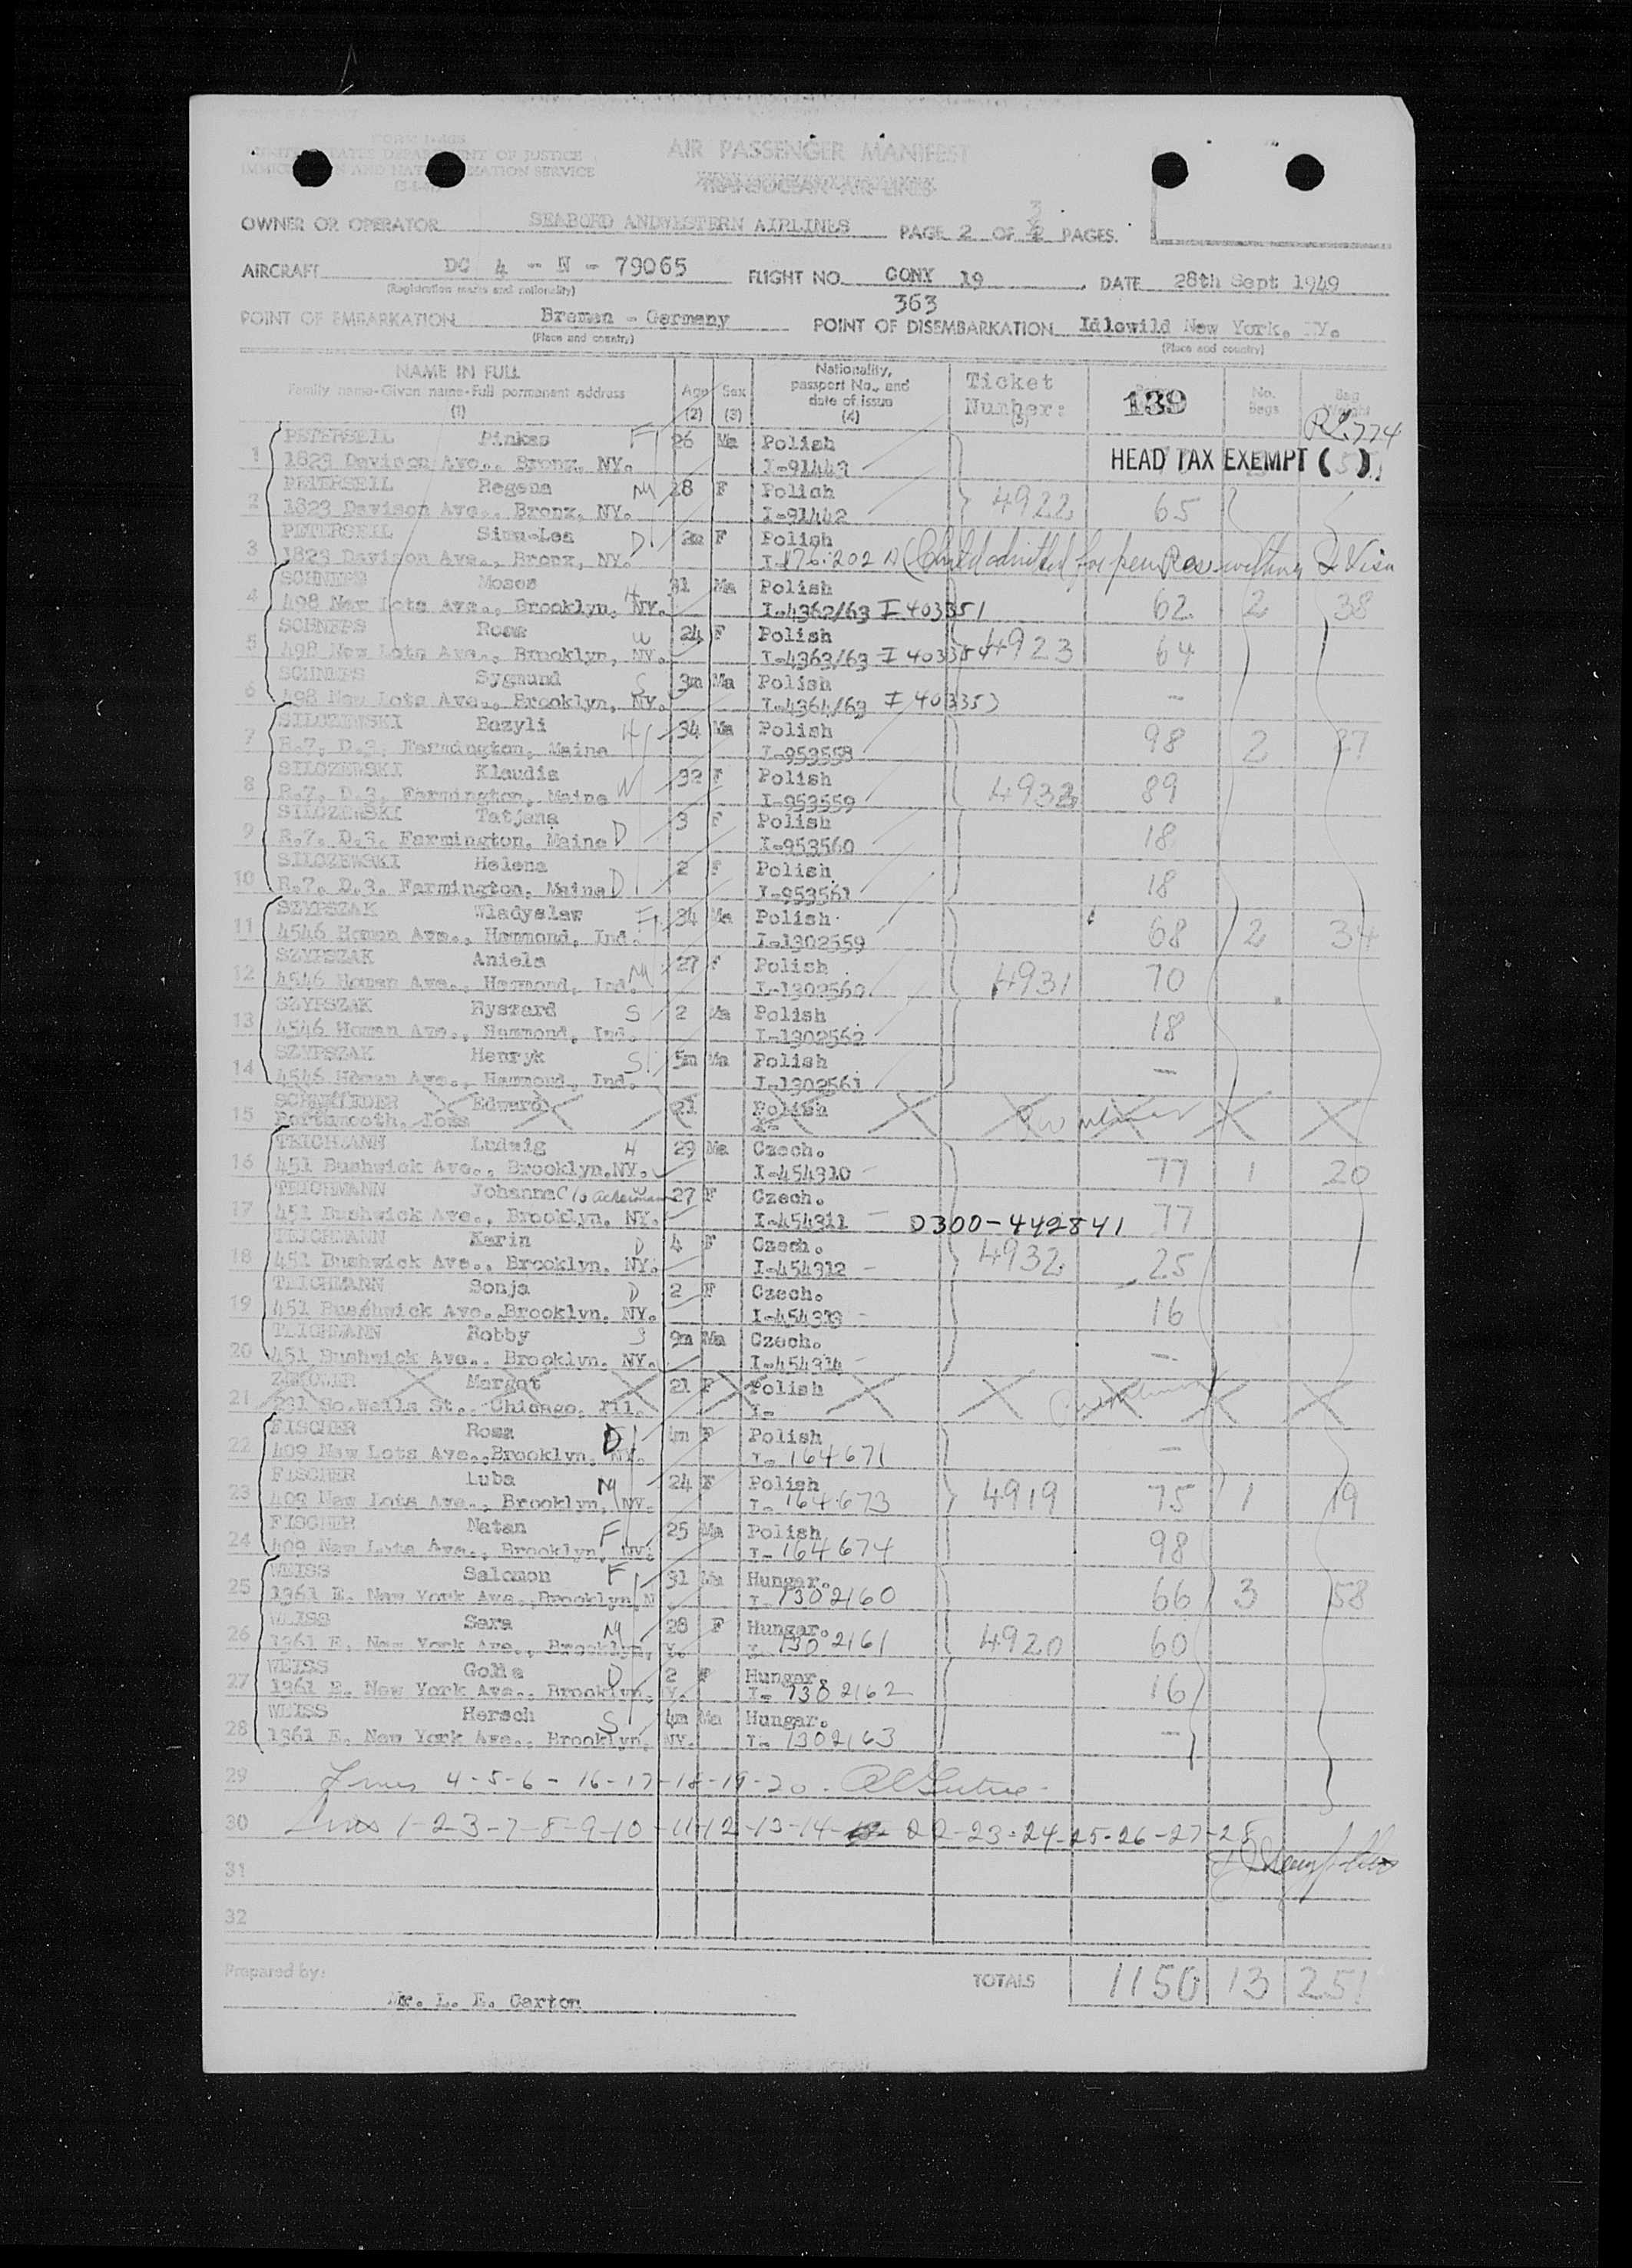 FORM I-466
UNITED STATES DEPARTMENT OF JUSTICE
IMMIGRATION AND NATURALIZATION SERVICE
AIR PASSENGER MANIFEST
TRANSOCEAN AIR LINES
OWNER OR OPERATOR SEABORD ANDWESTERN AIRLINES PAGE 2 OF 3 PAGES
AIRCRAFT DC 4 - N - 79065 FLIGHT NO. CONY 19 DATE 28th Sept 1949
(Registration marks and nationality)
363
POINT OF EMBARKATION Bremen - Germany POINT OF DISEMBARKATION Idlewild New York. NY.
(Place and country) (Place and country)
NAME IN FULL Age Sex Nationality, passport No., and date of issue Ticket Number: 139 No. Bags Bag Weight
Family name-Given name-Full permanent address
(1) (2) (3) (4) (5)
PETERSEIL Pinkas F 26 Ma Polish
1 1823 Davison Ave., Bronx, NY. I-91443 HEAD TAX EXEMPT ( )
PETERSEIL Regena M 28 F Polish 4922 65
2 1823 Davison Ave., Bronx, NY. I-91442
PETERSEIL Sima-Lea D 2m F Polish
3 1823 Davison Ave., Bronx, NY. I-176202 (Child admitted for perm Res without I Visa
SCHNEPS Moses H 31 Ma Polish
4 498 New Lots Ave., Brooklyn, NY. I-4362/63 I 403351 62 2 38
SCHNEPS Rosa W 24 F Polish
5 498 New Lots Ave., Brooklyn, NY. I-4363/63 I 403354 4923 64
SCHNEPS Sygmund S 3m Ma Polish
6 498 New Lots Ave., Brooklyn, NY. I-4364/63 I 403353 -
SILCZEWSKI Bazyli H 34 Ma Polish
7 R.7. D.3. Farmington, Maine I-953558 98 2 27
SILCZEWSKI Klaudia 32 F Polish
8 R.7. D.3. Farmington, Maine W I-953559 4933 89
SILCZEWSKI Tatjana 3 F Polish
9 R.7. D.3. Farmington, Maine D I-953560 18
SILCZEWSKI Helena 2 F Polish
10 R.7. D.3. Farmington, Maine D I-953561 18
SZYPSZAK Wladyslaw F 34 Ma Polish
11 4546 Homan Ave., Hammond, Ind. I-1302559 68 2 34
SZYPSZAK Aniela M 27 F Polish
12 4546 Homan Ave., Hammond, Ind. I-1302560 4931 70
SZYPSZAK Ryszard S 2 Ma Polish
13 4546 Homan Ave., Hammond, Ind. I-1302562 18
SZYPSZAK Henryk S 5m Ma Polish
14 4546 Homan Ave., Hammond, Ind. I-1302561 -
Edward 21 Polish
15 I-
TEICHMANN Ludwig H 29 Ma Czech.
16 451 Bushwick Ave., Brooklyn, NY. I-454310 77 1 20
TEICHMANN Johanna C/o Ackerman 27 F Czech.
17 451 Bushwick Ave., Brooklyn, NY. I-454311 D300-442841 77
TEICHMANN Karin D 4 F Czech.
18 451 Bushwick Ave., Brooklyn, NY. I-454312 4932 25
TEICHMANN Sonja D 2 F Czech.
19 451 Bushwick Ave. Brooklyn, NY. I-454313 16
TEICHMANN Robby S 9m Ma Czech.
20 451 Bushwick Ave., Brooklyn, NY. I-454314 -
Margot 21 F Polish
21 231 So. Wells St., Chicago, Ill. I-
FISCHER Rosa D 4m F Polish
22 409 New Lots Ave., Brooklyn, NY. I- 164671 -
FISCHER Luba M 24 F Polish
23 409 New Lots Ave., Brooklyn, NY. I- 164673 4919 75 1 19
FISCHER Natan F 25 Ma Polish
24 409 New Lots Ave., Brooklyn, NY. I- 164674 98
WEISS Salomon F 31 Ma Hungar.
25 1361 E. New York Ave., Brooklyn, N I- 1302160 66 3 58
WEISS Sara M 28 F Hungar.
26 1361 E. New York Ave., Brooklyn, Y. I- 1302161 4920 60
WEISS Golda D 2 F Hungar
27 1361 E. New York Ave., Brooklyn, Y. I- 1302162 16
WEISS Hersch S 4m Ma Hungar.
28 1361 E. New York Ave., Brooklyn, NY. I- 1302163 -
29 Lines 4-5-6-16-17-18-19-20.
30 Lines 1-2-3-7-8-9-10-11-12-13-14- 22-23-24-25-26-27-28
31
32
Prepared by: Mr. L. E. Carton TOTALS 1150 13 251